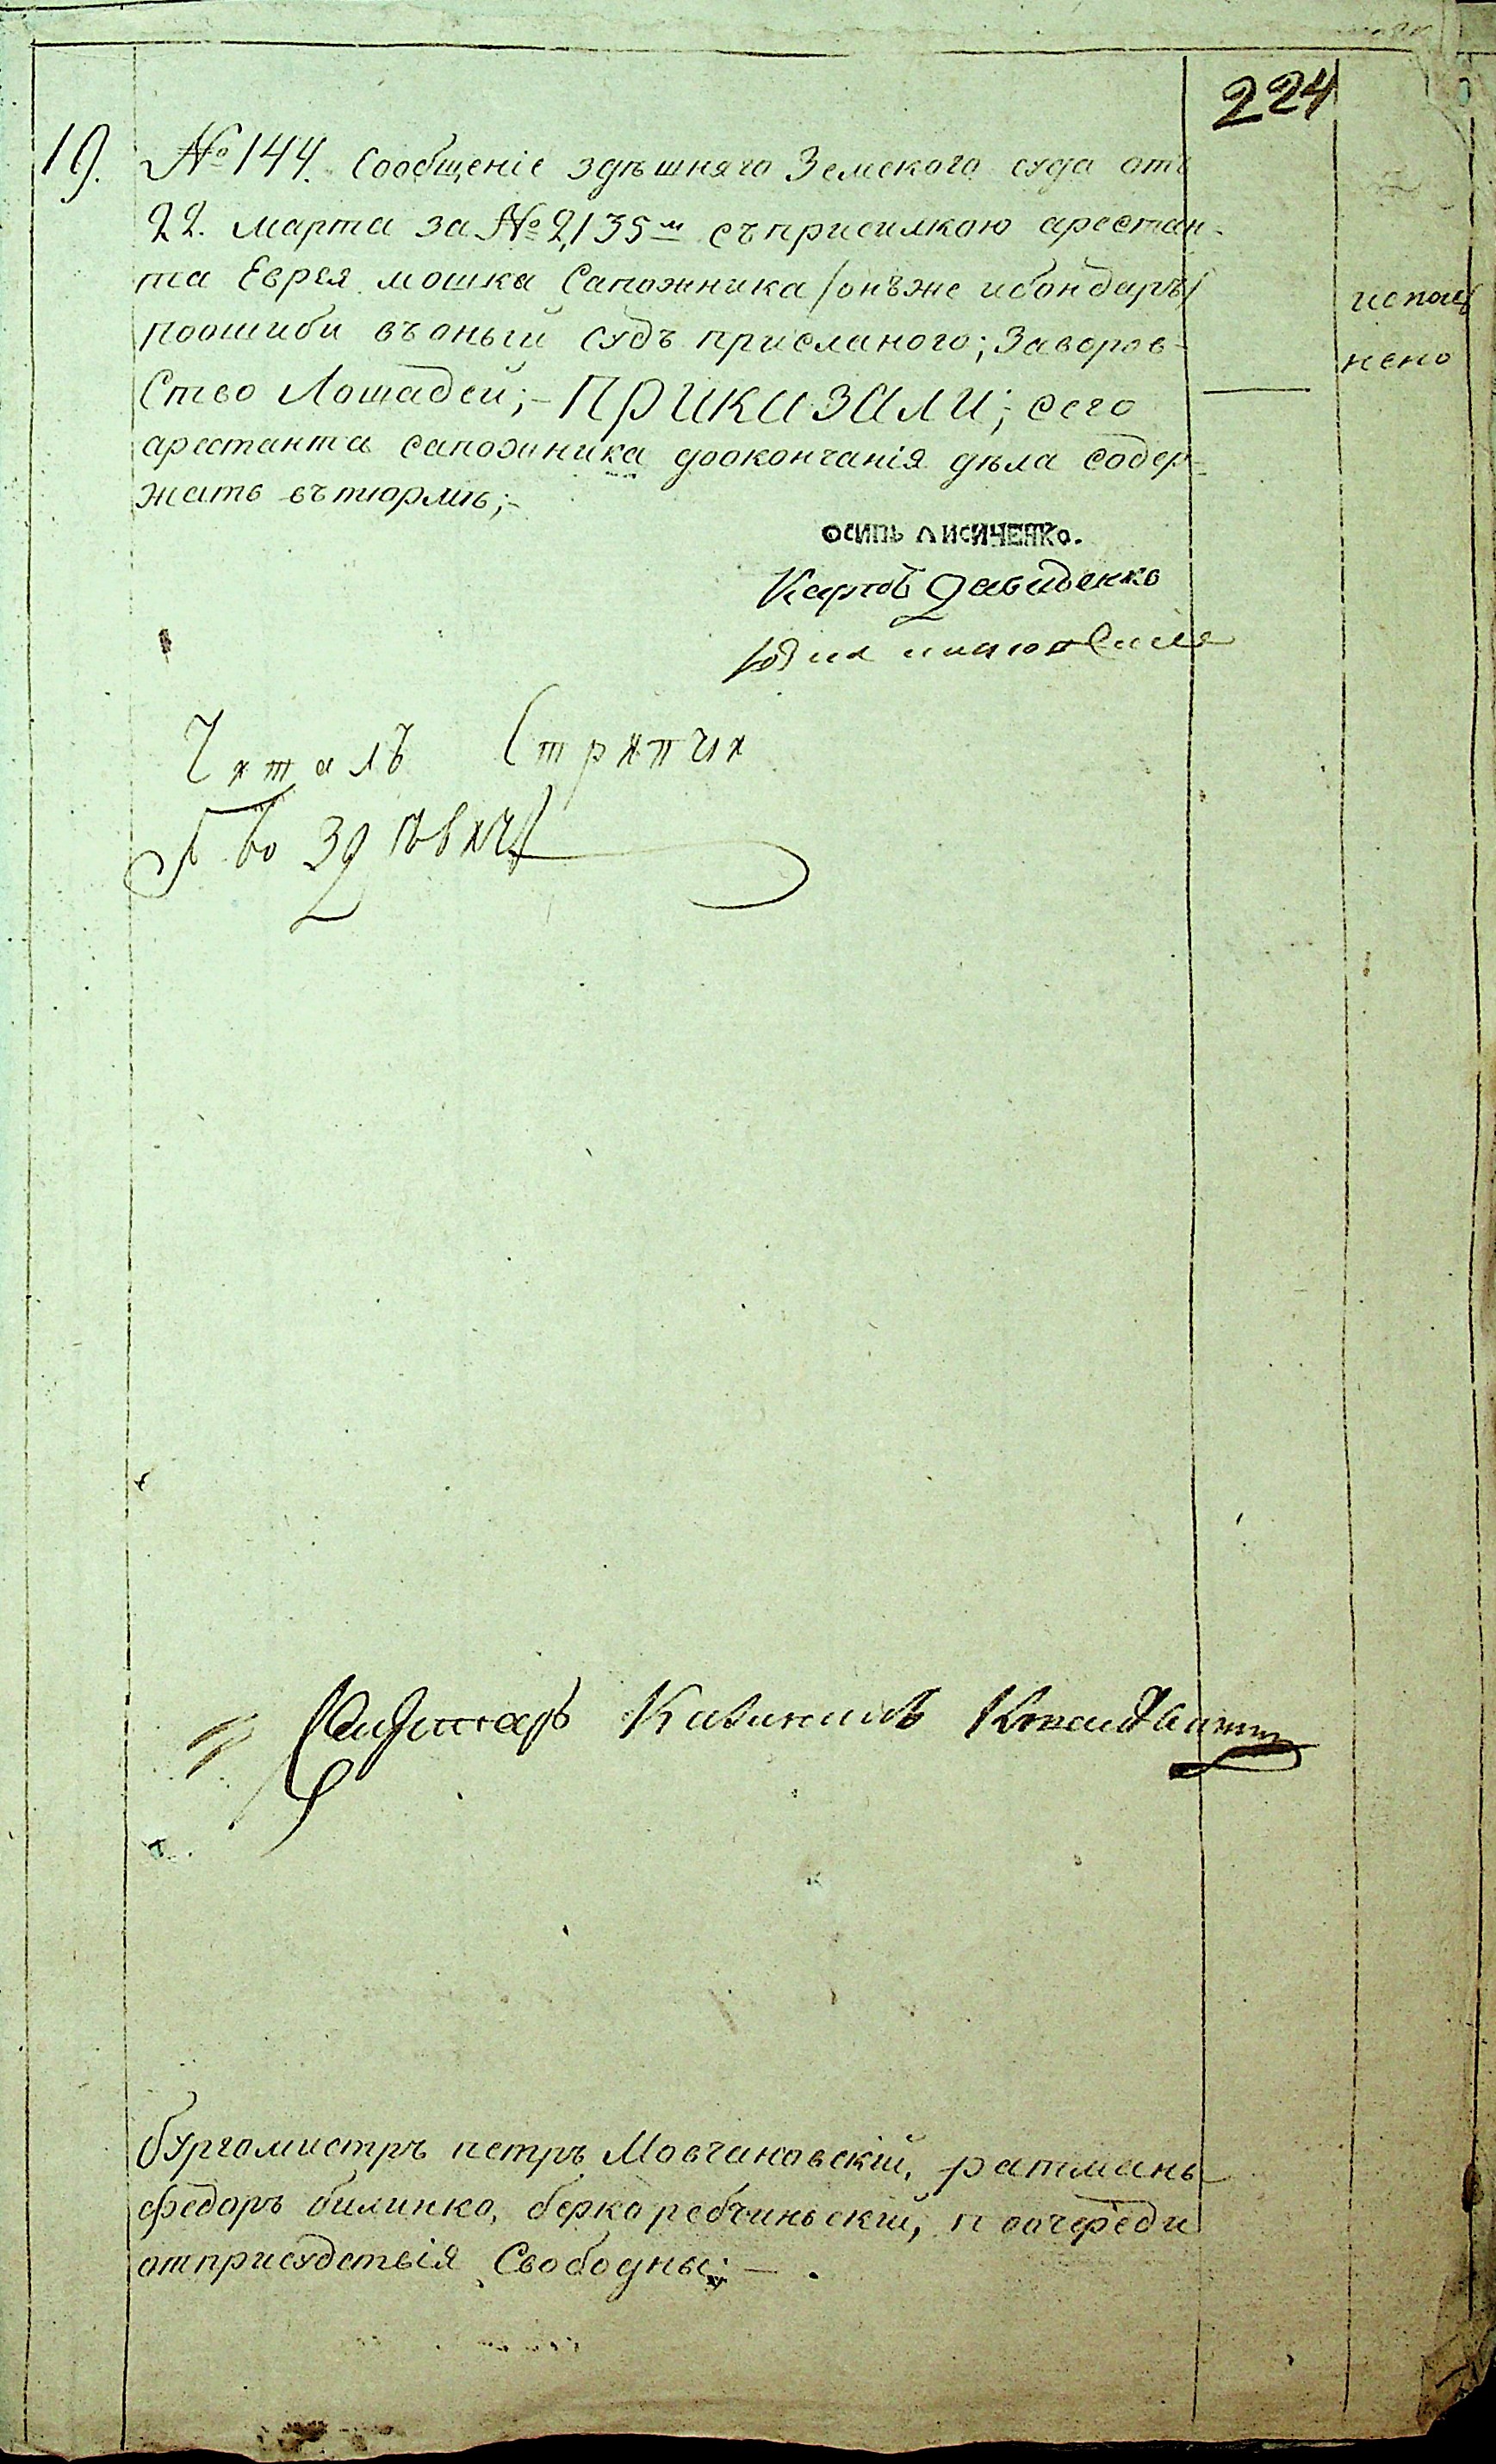 224
19. № 144. Сообщеніе здѣшняго Земского суда отъ
22. марта за № 2,135м съприсилкою арестан-
та Еврея мошка Сапожника /онъже ибондаръ/
поошибки въоный судъ присланого; Заворов-
ство Лошадей;- ПРИКАЗАЛИ; сего
арестанта сапожника доокончанія дѣла содер-
жать вътюрмѣ;-
испол
нено
осипъ лисиченко.
Карпъ Давиденко
Читалъ Стряпчи
Секретаръ
бургомистръ петръ Мовчановскій, ратманы
федоръ билинко, берко ребчиньскій, поочереди
отприсудствія Свободны;—.